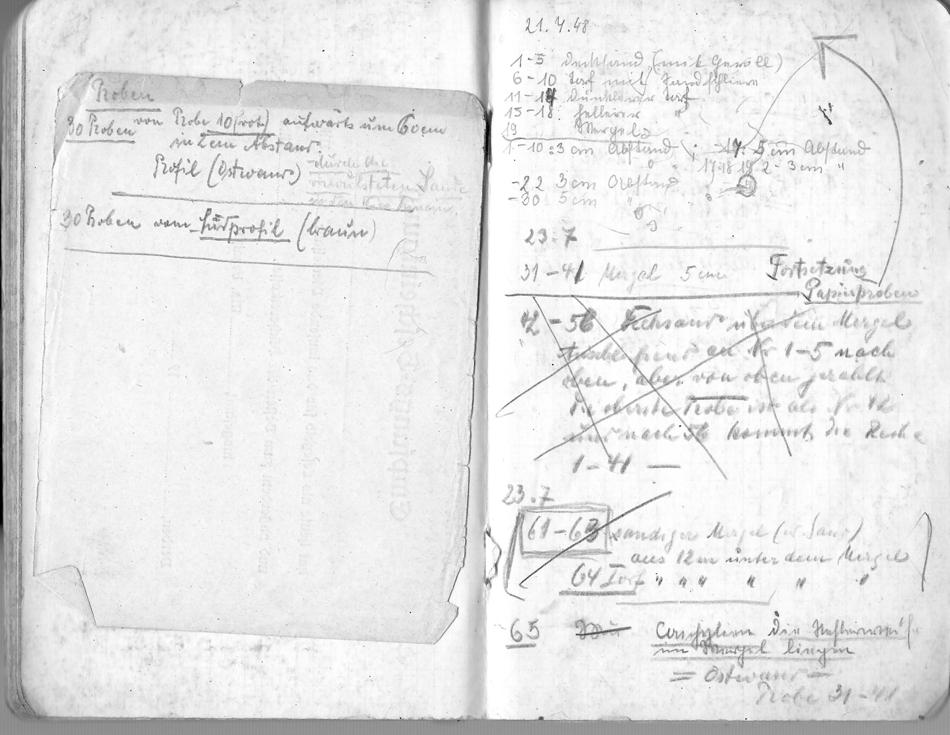 Proben
30 Proben von Probe 10 (rot) aufwärts um 60 cm
in 2 cm Abstand.
Profil (Ostwand)
durch die
30 Proben vom Südprofil (braun)
21.7.48
1-5 Decksand (mit Geröll)
6-10 Torf mit Sandschlieren
11-14 dunklerer Torf
15-18 hellerer "
19 Mergel
1-10: 3 cm Abstand 17: 5 cm Abstand
17 18 19 2-3 cm "
-22 3 cm Abstand
-30 5 cm
23.7
31-41 Mergel 5 cm Fortsetzung
Papierproben
42-56 über dem Mergel
anschließend an Nr 1-5 nach
oben, aber von oben gezählt
die oberste Probe ist als Nr 42
und nach 56 kommt die Reihe
1-41
23.7
61-63 sandiger Mergel
aus 12 m unter dem Mergel
64 Torf " " " " " "
65 die
im Mergel liegen
= Ostwand =
Probe 31-41